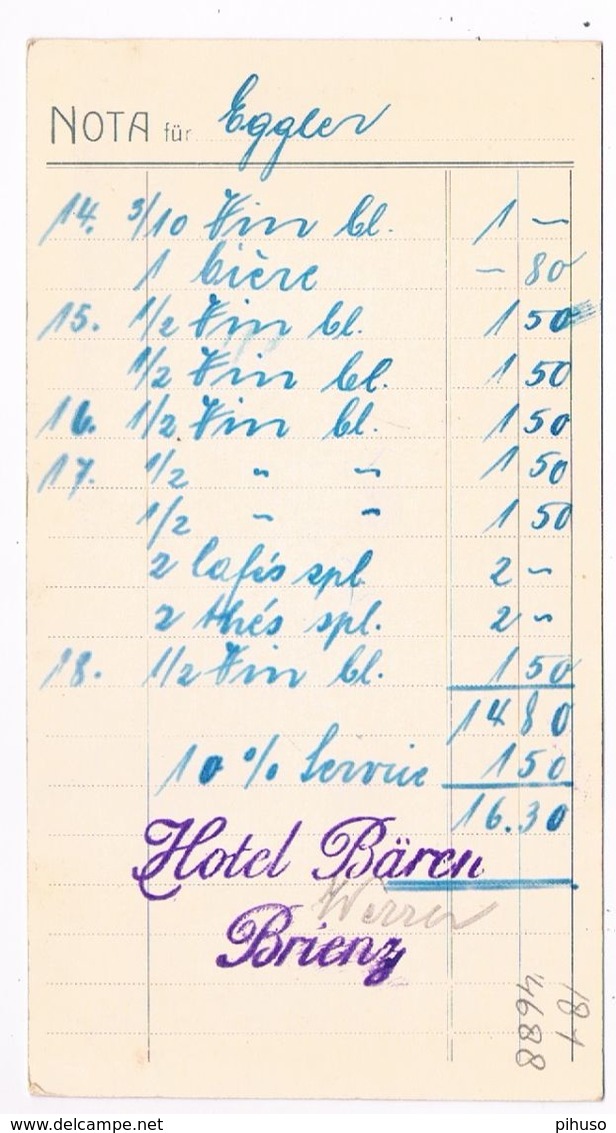 NOTA für Eggler
14. 3/10 Vin bl. 1 –
1 bière – 80
15. 1/2 Vin bl. 1 50
1/2 Vin bl. 1 50
16. 1/2 Vin bl. 1 50
17. 1/2 " " 1 50
1/2 " " 1 50
2 Cafés spl. 2 –
2 thés spl. 2 –
18. 1/2 Vin bl. 1 50
14 80
10 % Service 1 50
16.30
Hotel Bären
Brienz
181
4688
www.delcampe.net
pihuso